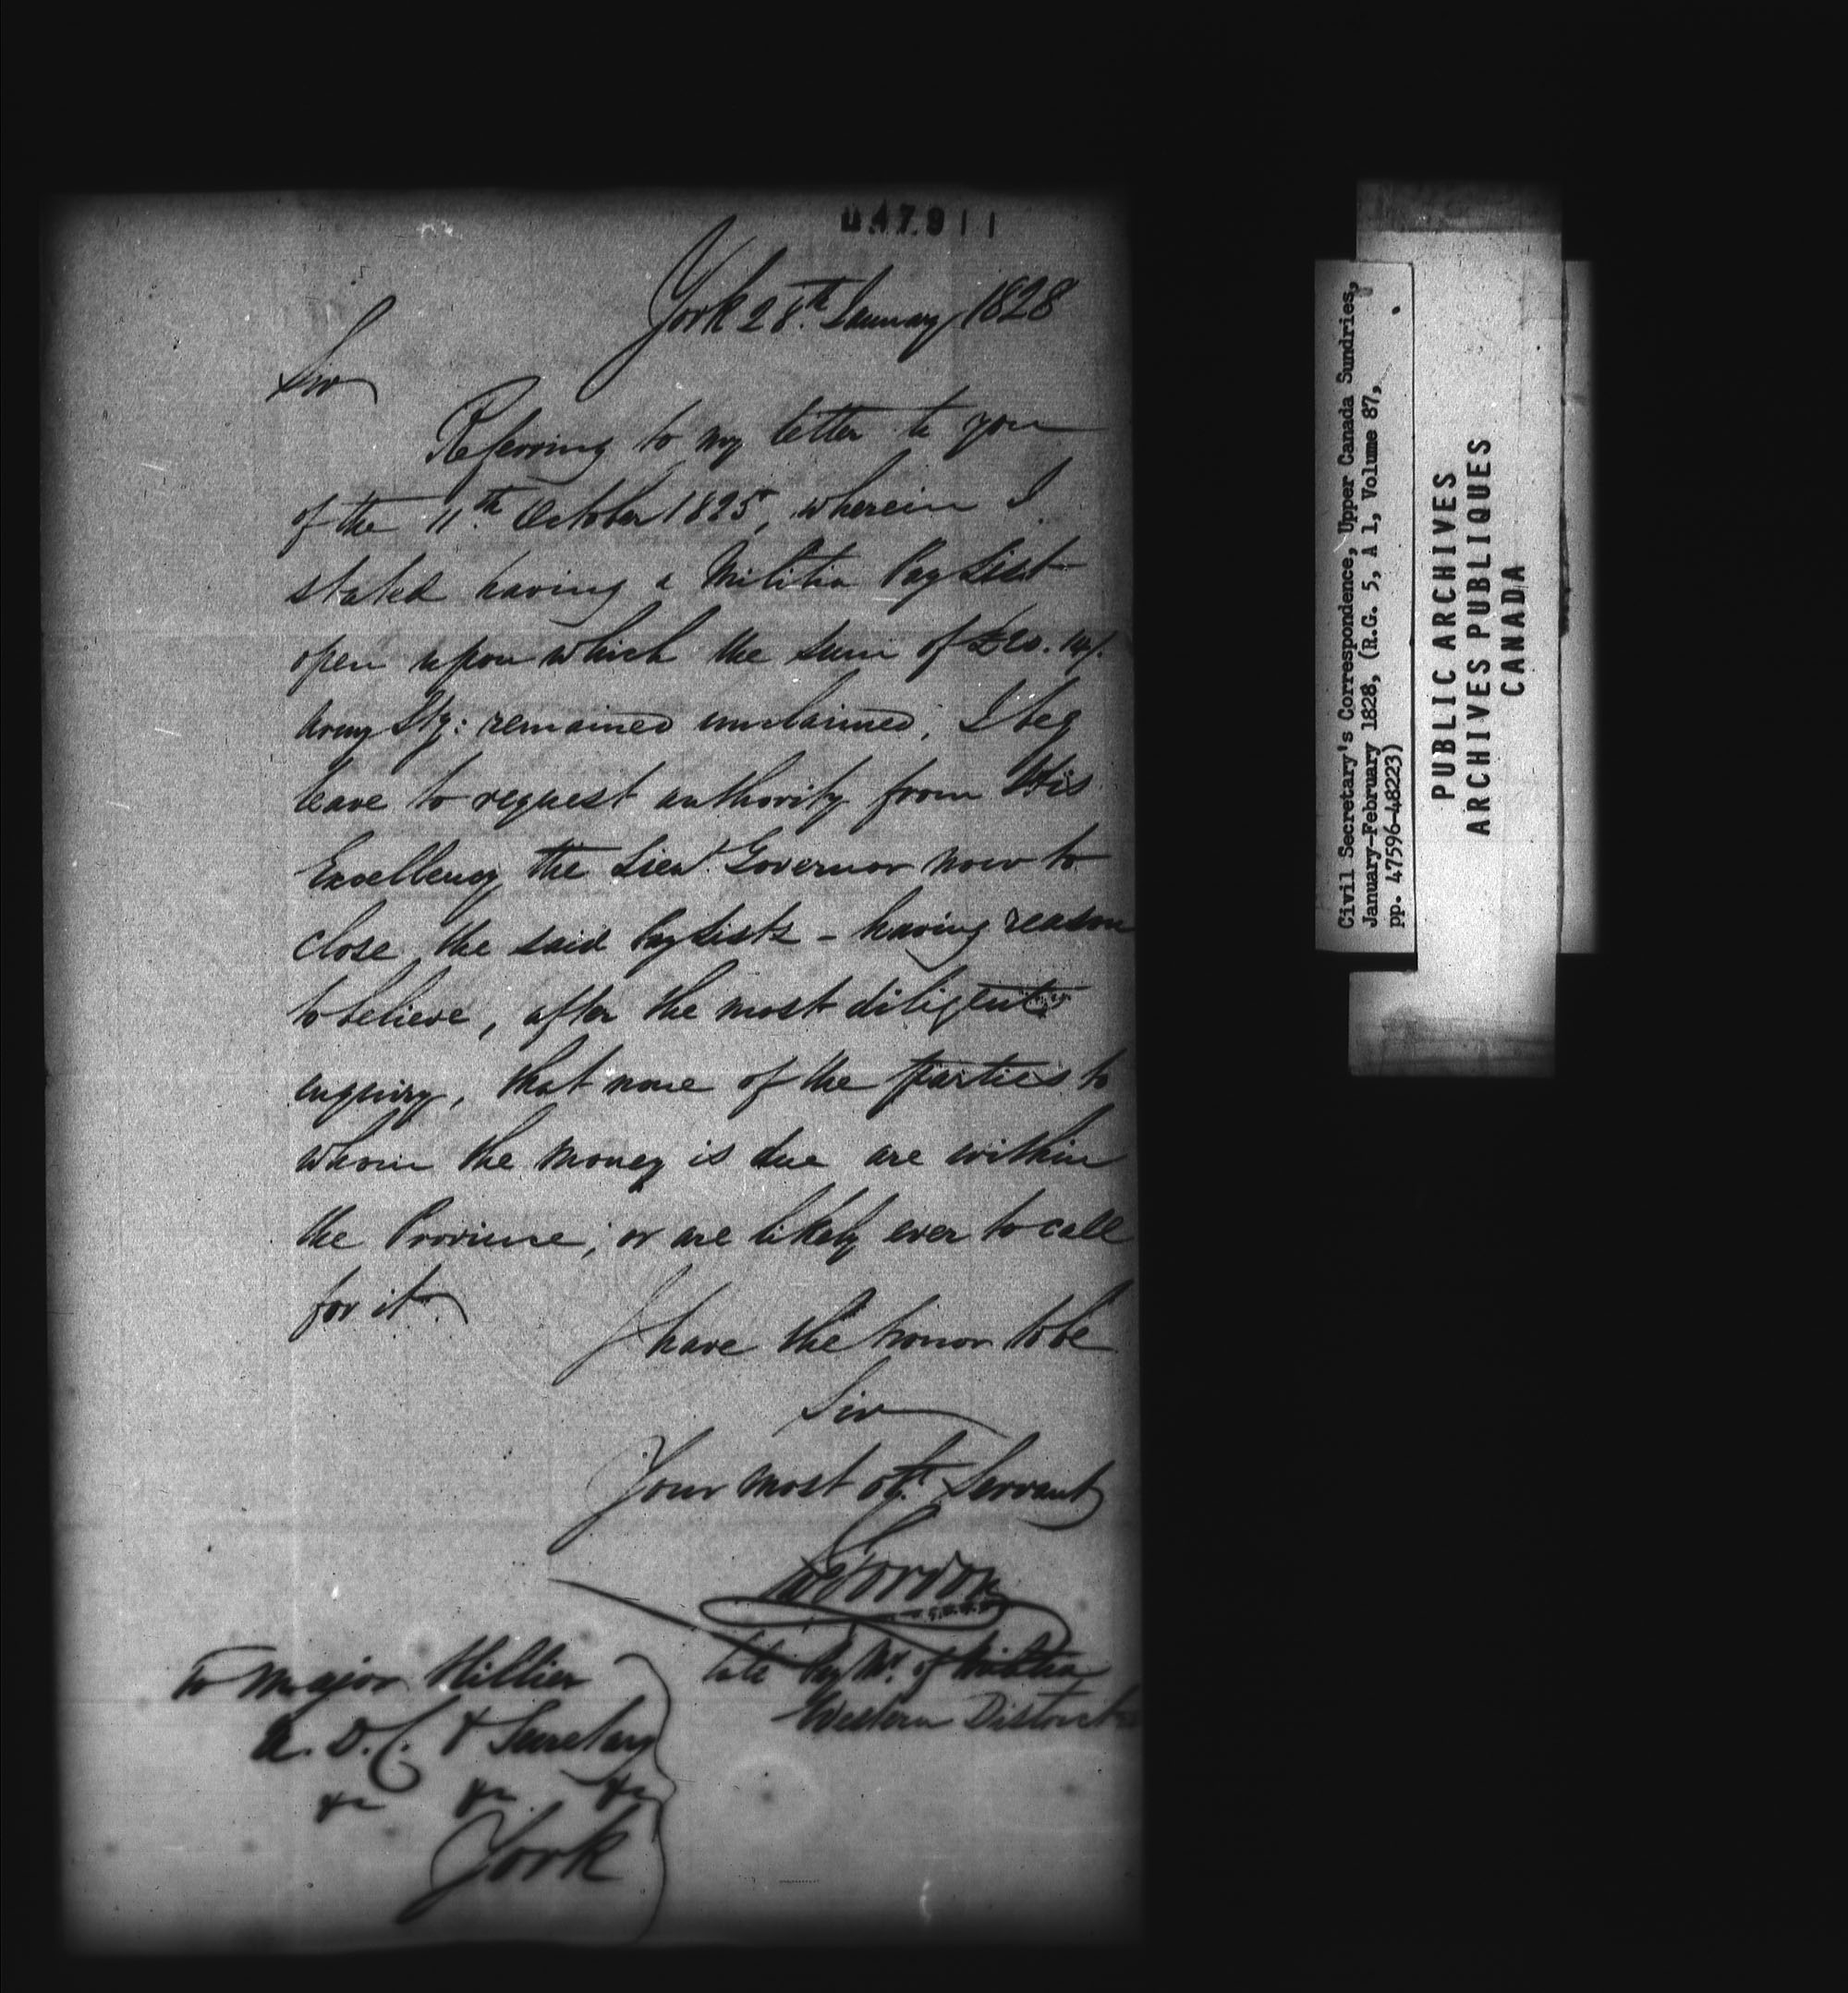 047911
York 28th January 1828
Sir
Referring to my letter to you
of the 11th October 1825, wherein I
stated having a Militia Pay List
open upon which the sum of
Army Stg: remained unclaimed, I beg
leave to request authority from His
Excellency the Lieut Governor now to
close the said Pay Lists - having reason
to believe, after the most diligent
enquiry, that none of the parties to
whom the money is due are within
the Province, or are likely ever to call
for it
I have the honor to be
Sir
Your most obt. Servant
Gordon
late Pay Mr. of Militia
Western District
To Major Hillier
A. D. C. & Secretary
&c &c &c
York
Civil Secretary's Correspondence, Upper Canada Sundries,
January-February 1828, (R.G. 5, A 1, Volume 87,
pp. 47596-48223)
PUBLIC ARCHIVES
ARCHIVES PUBLIQUES
CANADA